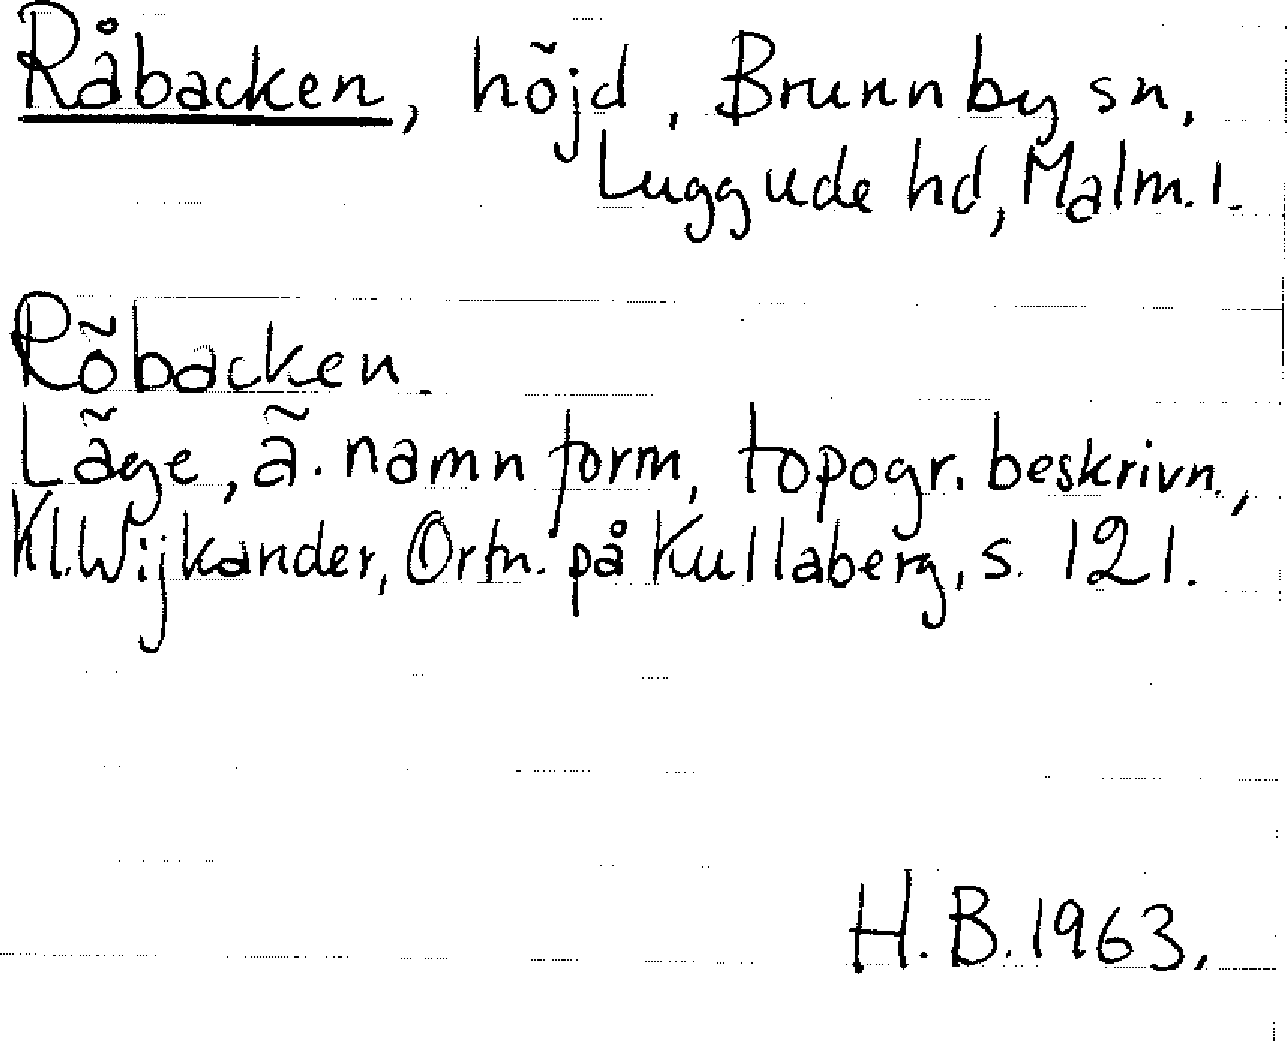 Råbacken, höjd, Brunnby sn,
Luggude hd, Malm. l.
Röbacken.
Läge, ä. namnform, topogr. beskrivn.,
Kl. Wijkander, Ortn. på Kullaberg, s. 121.
H. B. 1963.